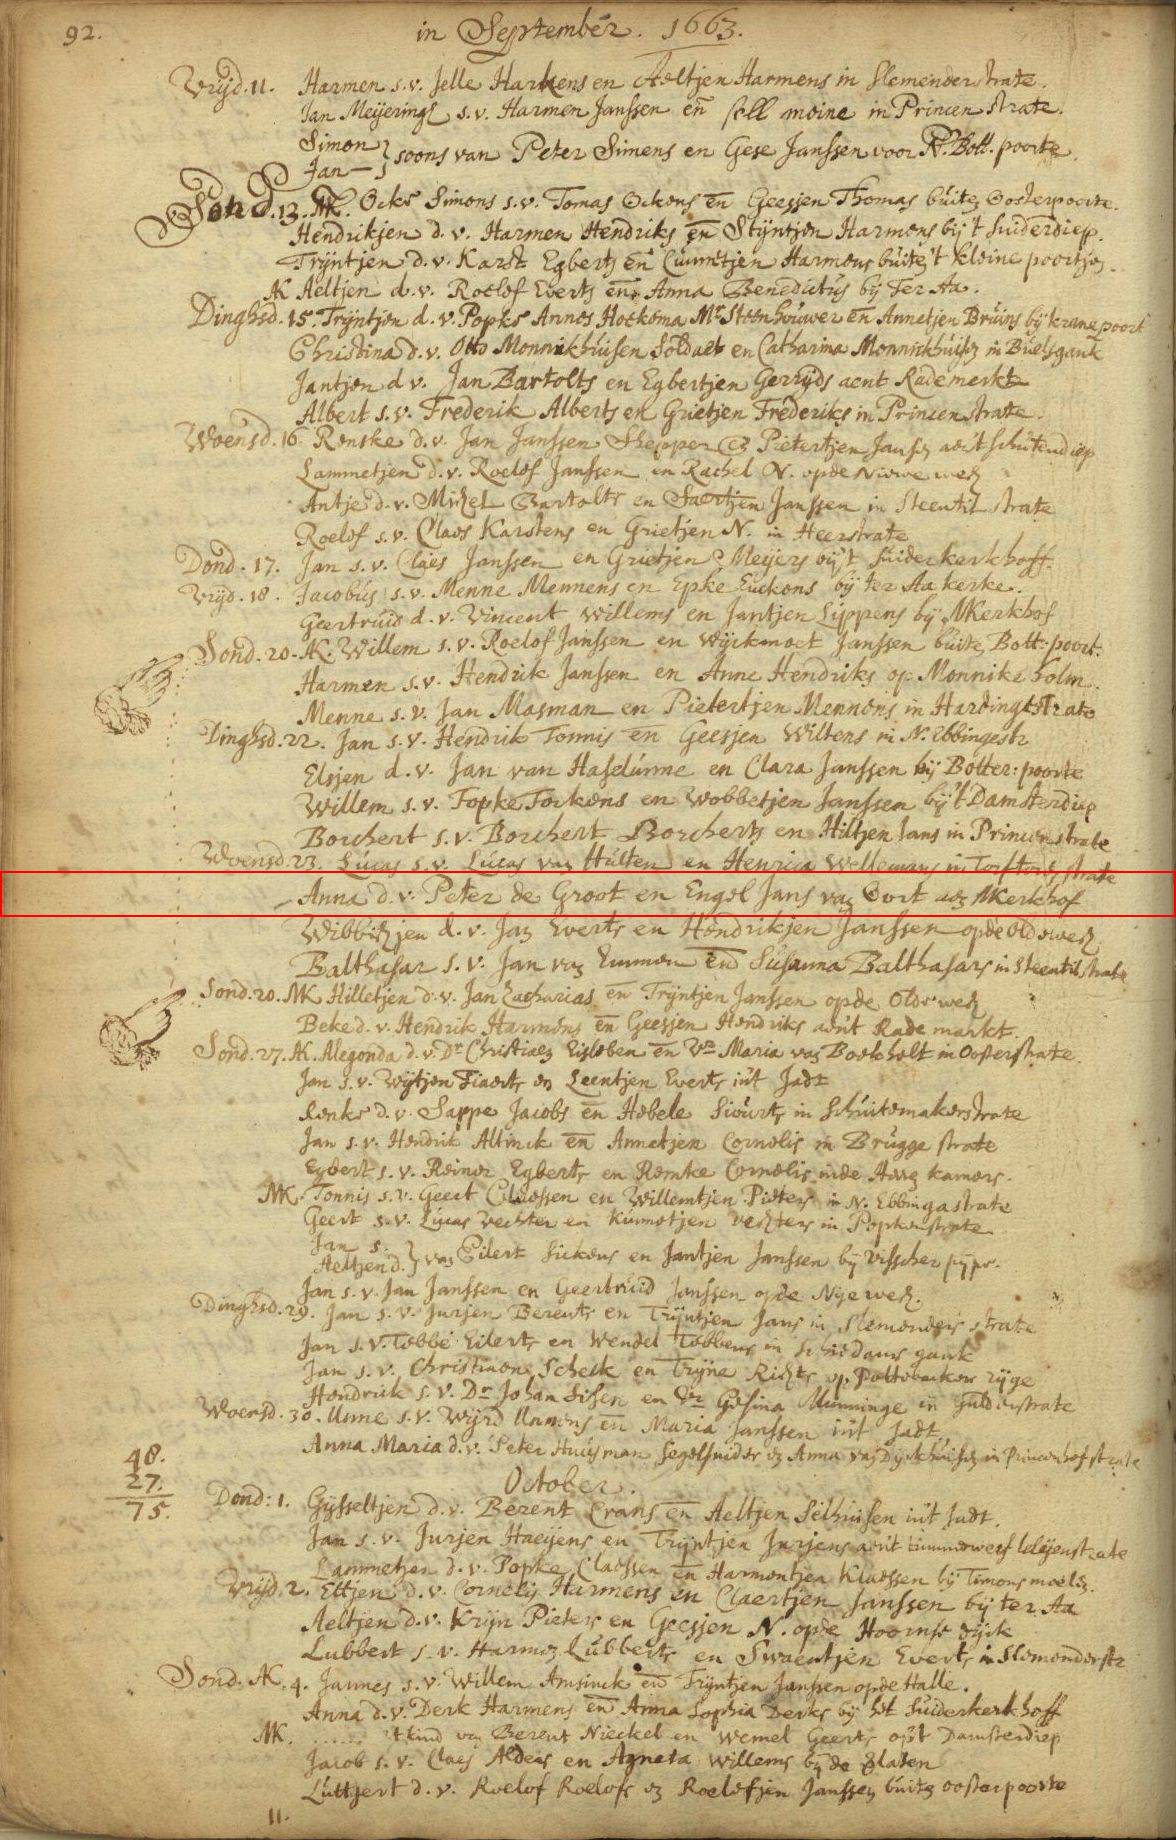 92.
in September. 1663.
Vrijd. 11. Harmen s.v. Jelle Harkens en Aeltjen Harmens in Slemender strate.
Jan Meijeringh s.v. Harmen Janssen en in Princen strate.
Simon
Jan soons van Peter Simens en Gese Janssen voor N. Bott. poorte.
Sond. 13. AK. Ocke Simons s.v. Tomas Ockens en Geesjen Thomas buite Oosterpoorte.
Hendrikjen d.v. Harmen Hendriks en Stijntjen Harmens bij 't Suiderdiep.
Trijntjen d.v. Karst Egberts en Harmens buite 't kleine poortje.
AK Aeltjen d.v. Roelof Everts en Anna Benedictus bij Ter Aa.
Dinghsd. 15. Trijntjen d.v. Popke Annes Hoekema Mr Steenhouwer en Annetjen Bruins bij kranepoort
Christina d.v. Otto Monnikhuisen Soldaet en Catharina Monnikhuise in gank
Jantjen d v. Jan Bartolts en Egbertjen Gerryds aent Rademerkt
Albert s.v. Frederik Alberts en Grietjen Frederiks in Princen strate.
Woensd. 16 Renske d.v. Jan Janssen Schepper en Pietertjen Jansen aen't Schuitendiep
Lammetjen d.v. Roelof Janssen en Rachel N. opde Niewe wech
Antje d.v. Michel Bartolts en Janssen in Steentil strate
Roelof s.v. Claes Karstens en Grietjen N. in Heerstrate
Dond. 17. Jan s.v. Claes Janssen en Grietjen Meijers bij 't Suiderkerkhoff.
Vrijd. 18. Jacobus s.v. Menne Mennens en Epke Euckens bij ter Aa kerke.
Geertruid d.v. Vincent Willems en Jantjen Lippens bij MKerkhof
Sond. 20. AK. Willem s.v. Roelof Janssen en Janssen buite Bott: poort.
Harmen s.v. Hendrik Janssen en Anne Hendriks op Monnike holm.
Menne s.v. Jan Masman en Pietertjen Mennens in Hardingestrate
Dinghsd. 22. Jan s.v. Hendrik Tonnis en Geesjen Wiltens in N. Ebbingestr
Elsjen d.v. Jan van Haselunne en Clara Janssen bij Botter: poorte
Willem s.v. Fopke Forkens en Wobbetjen Janssen bij 't Damsterdiep
Borchert s.v. Borchert Borcherts en Hiltjen Jans in Princenstrate
Woensd. 23. Lucas s.v. Lucas van Hulten en Henrica Wellemans in strate
Anna d.v. Peter de Groot en Engel Jans van Oort aen MKerkhof
Wibbichjen d.v. Jan Everts en Hendrikjen Janssen opde oldewech
Balthasar s.v. Jan van Emmen en Susanna Balthasars in Steentil strate
Sond. 20. MK Hilletjen d.v. Jan Zacharias en Trijntjen Janssen opde Oldewech
Beke d.v. Hendrik Harmens en Geesjen Hendriks aen't Rade markt.
Sond. 27. AK. Alegonda d.v. Dr Christiaen Eisleben en Vr Maria van Boekholt in Oosterstrate.
Jan s.v. Wijtjen en Leentjen Everts int Jadt
Renke d.v. Sappe Jacobs en Hebele Siourts in Schuitemakerstrate
Jan s.v. Hendrik Altinck en Annetjen Cornelis in Brugge strate
Egbert s.v. Reiner Egberts en Remke Cornelis inde kamers.
MK. Tonnis s.v. Geert Claessen en Willemtjen Pieters in N. Ebbingastrate
Geert s.v. Lucas Vechter en Kunnetjen Vechters in Popkenstrate
Jan s.
Aeltjen d. van Eilert Sickens en Jantjen Janssen bij Visscher pijpe.
Jan s.v. Jan Janssen en Geertruid Janssen opde Nije wech.
Dinghsd. 29. Jan s.v. Jurjen Berents en Trijntjen Jans in Slemenders strate
Jan s.v. Tobbe Eilerts en Wendel Tobbens in Schiedams gank
Jan s.v. Christiaen Scheck en Trijne op Pottebacker rijge
Hendrick s.v. Dr Johan Sisen en Vr Gesina Munninge in Gulderstrate
Woensd. 30. Unne s.v. Wijrd Unnens en Maria Janssen int Jadt
Anna Maria d.v. Peter Huisman Segelsnider en Anna van Dyckhuisen in Princenhofstrate
48.
27.
75.
October.
Dond: 1. Gijsseltjen d.v. Berent Crans en Aeltjen Selhuisen int Jadt.
Jan s.v. Jurjen Haeijens en Trijntjen Jurjens aen't timmerwerf
Lammetjen d.v. Popke Claessen en Harmentjen Klaessen bij Timons moele.
Vrijd. 2. Ettjen d.v. Cornelis Harmens en Claertjen Janssen bij ter Aa
Aeltjen d.v. Krijn Pieters en Geesjen N. opde Hoornse dijck
Lubbert s.v. Harmen Lubberts en Swaentjen Everts in Slemenderstr
Sond. AK. 4. Jannes s.v. Willem Amsinck en Trijntjen Janssen opde Halle.
Anna d.v. Derk Harmens en Anna Sophia Derks bij het Suiderkerkhoff
MK. ...... 't kind van Berent Nieckel en Wemel Geerts op't Damsterdiep
Jacob s.v. Claes Alders en Agneta Willems bij de Slaten
Luttjert d.v. Roelof Roelofs en Roelefjen Janssen buite oosterpoorte
11.